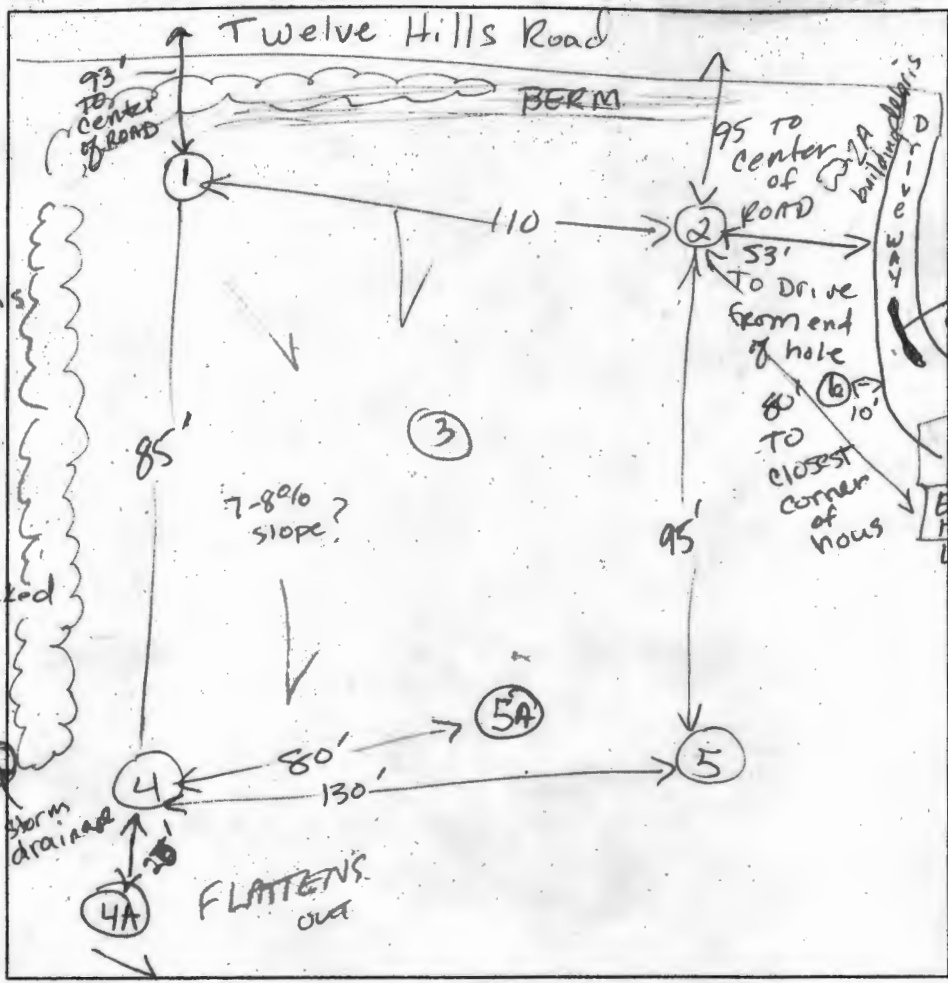 Twelve Hills Road
93'
TO
center
of ROAD
BERM
95 TO
center
of
ROAD
2A
building debris
Driveway
1
110
2
53'
TO Drive
from end
of hole
6
10'
80'
TO
closest
corner
of
hous
3
85'
7-8%
slope?
95'
ked
5A
80'
4
130'
5
storm
drainage
4A
FLATTENS
out